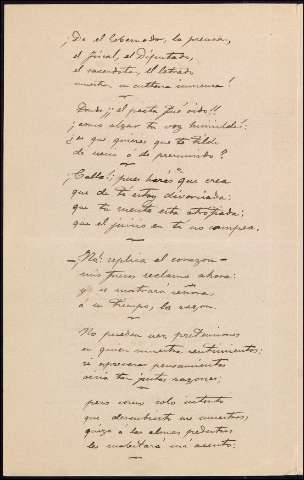 ¡Do el Gobernador, la prensa,
el fiscal, el Diputado,
el sacerdote, el letrado
muestran su cultura inmensa!
Donde ¡¡el poeta fué oido!!
¿cómo alzar tu voz humilde?
¿es que quieres que te tilde
de necio ó de presumido?
¡Calla!; pues harás que crea
que de tí estoy divorciada;
que tu mente está atrofiada;
que el juicio en tí no campea.
—Nó! replica el corazon—
mis fueros reclamo ahora:
y se mostrará señora,
á su tiempo, la razon.
No pueden ver pretensiones
en quien muestra sentimientos;
si ofreciera pensamientos
sería tan justas razones;
pero como solo intento
que descubierto me muestres,
quizá a las almas pedestres
les molestará mi acento;